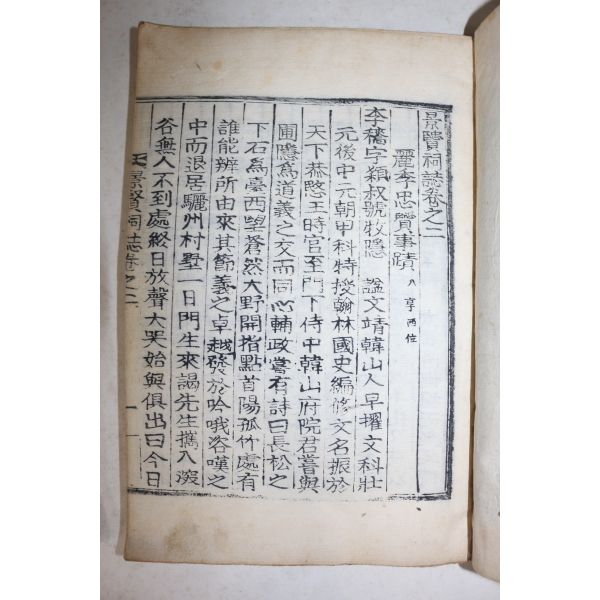 景賢祠誌卷之二
麗季忠賢事蹟 入享两位
李穡字穎叔號牧隱 諡文靖韓山人早擢文科壯
元後中元朝甲科特授翰林國史編修文名振於
天下恭愍王時官至門下侍中韓山府院君嘗與
圃隱爲道義之交而同心輔政嘗有詩曰長松之
下石爲臺西望蒼然大野開指點首陽孤竹處有
誰能辨所由來其節義之卓越發於吟哦咨嘆之
中而退居驪州村墅一日門生來謁先生携入深
谷無人不到處終日放聲大哭始與俱出曰今日
景賢祠誌卷之二 一